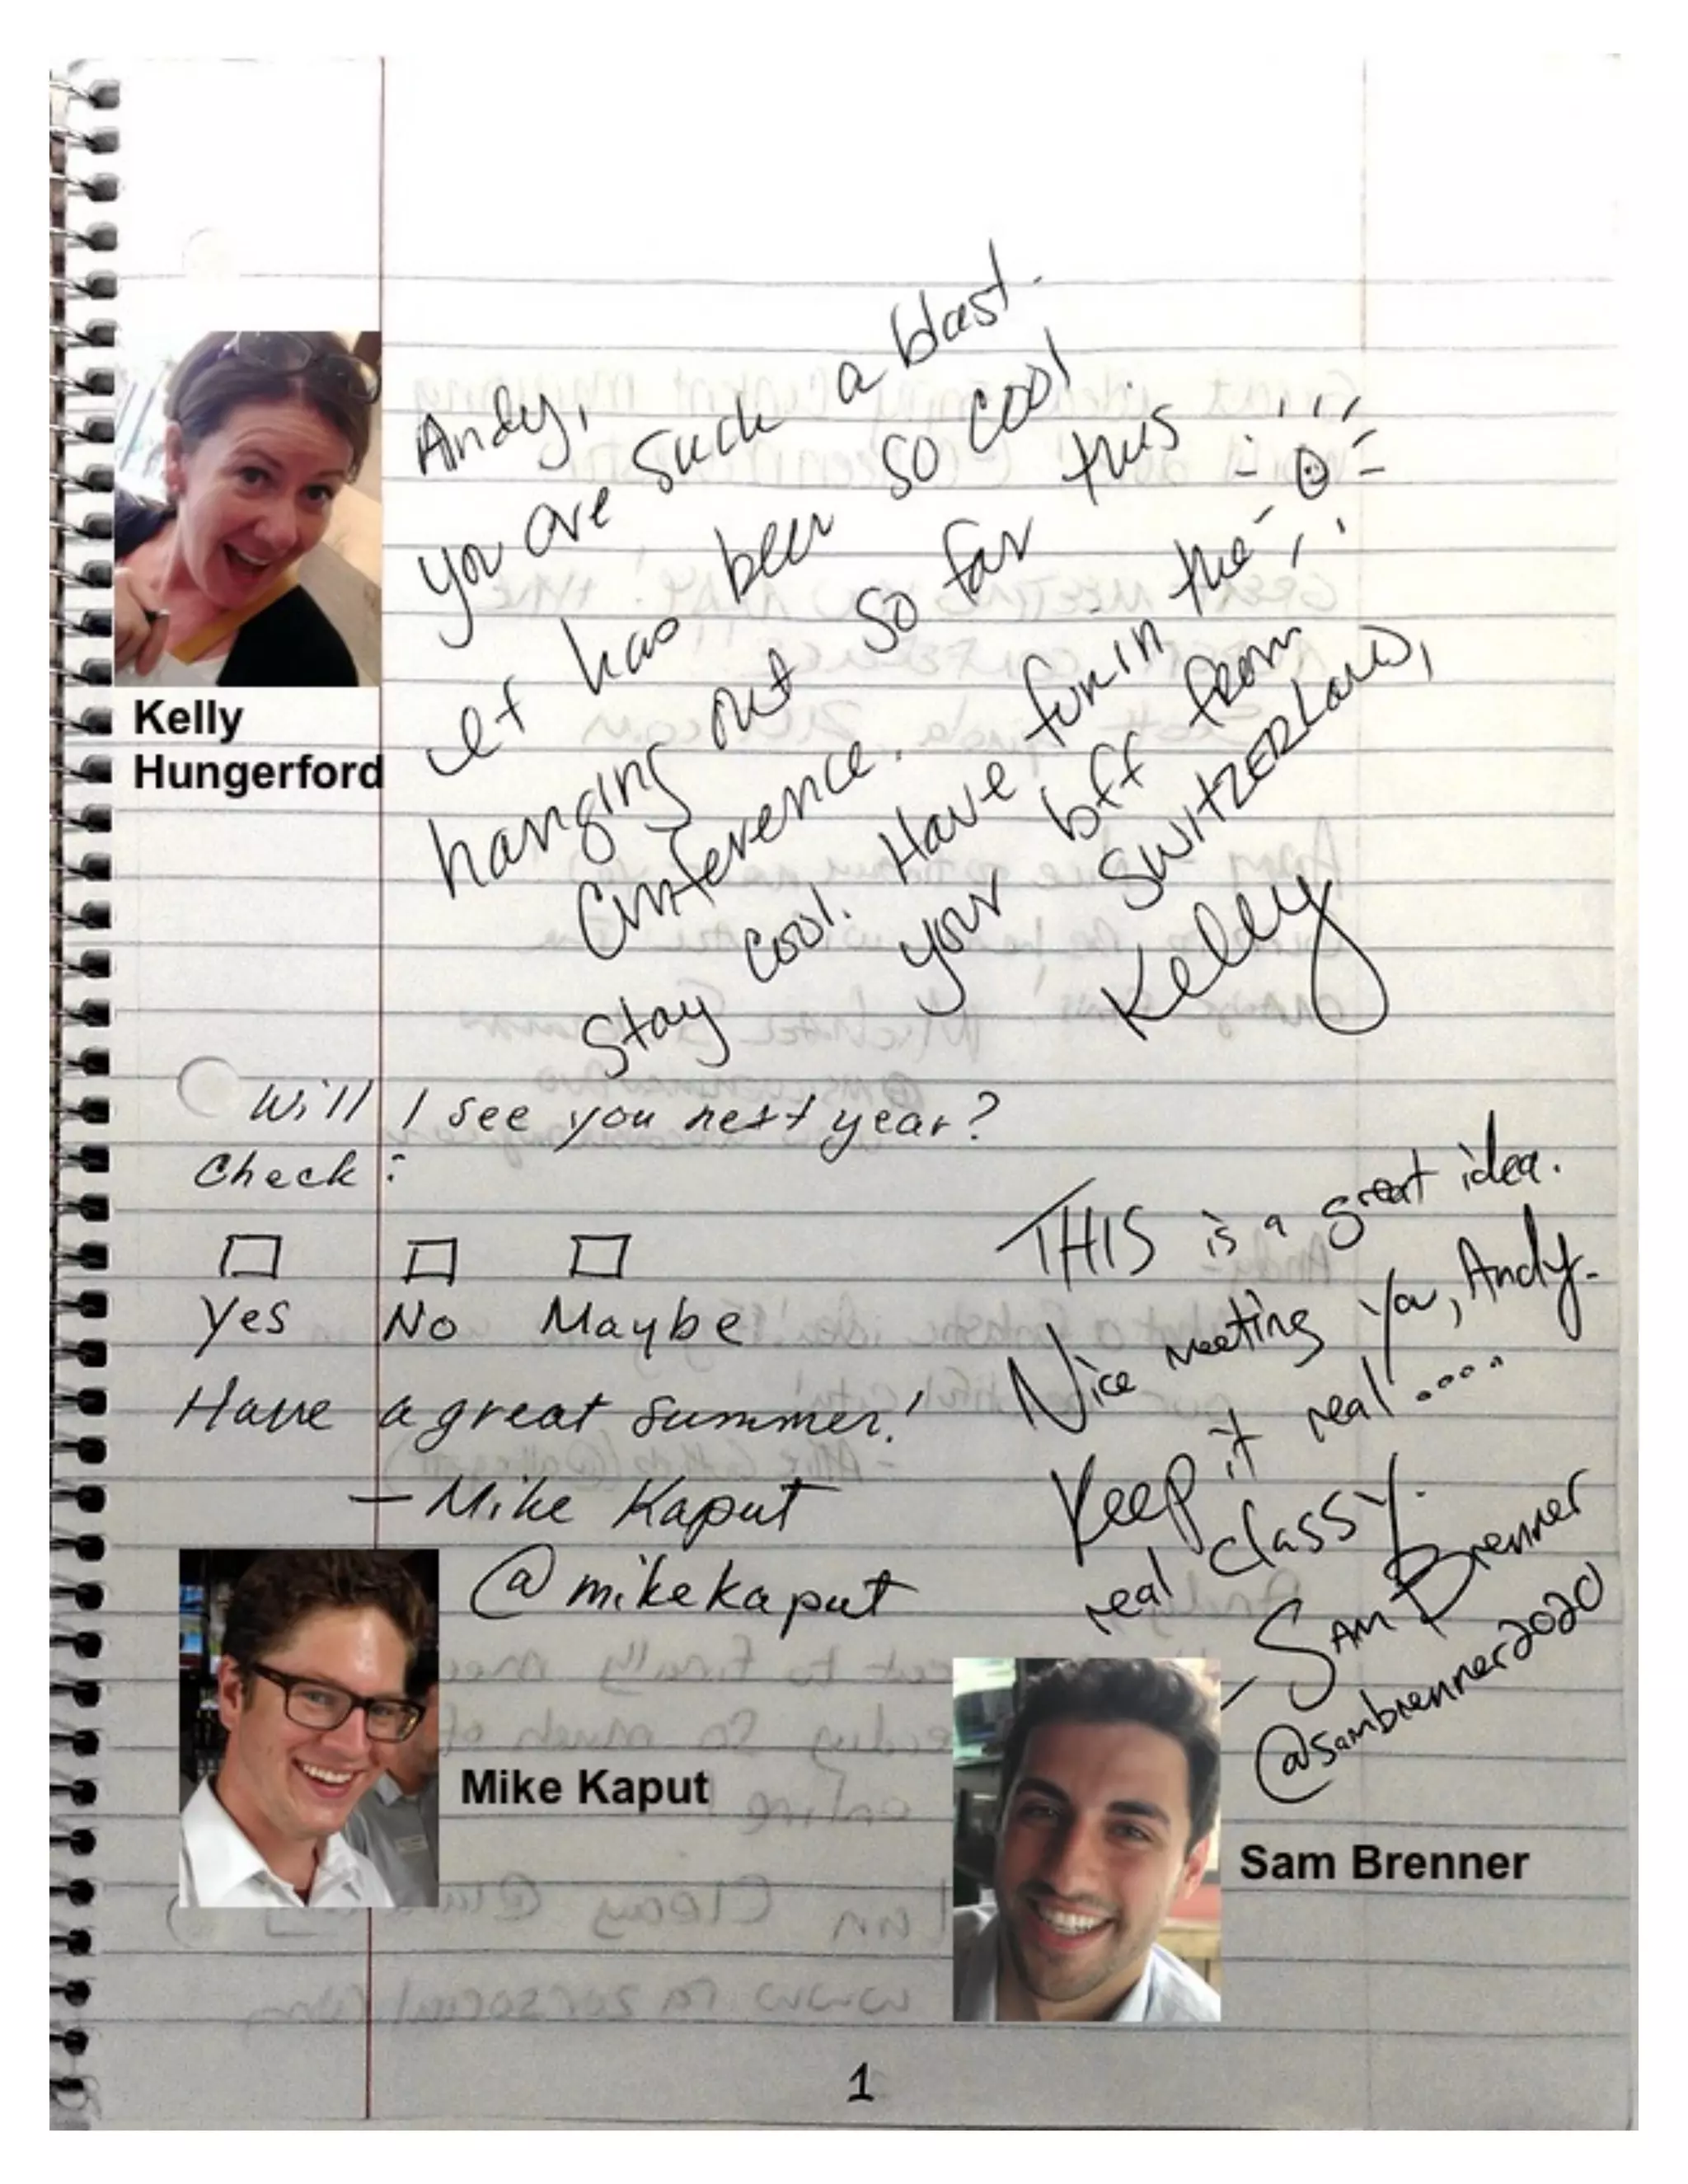 Andy,
you are such a blast.
It has been so cool
hanging out so far this
Conference. Have fun in the
Stay cool.
your bff from
SWITZERLAND,
Kelly
Kelly
Hungerford
Will I see you next year?
Check:
Yes No Maybe
Have a great summer!
— Mike Kaput
@mikekaput
Mike Kaput
THIS is a great idea.
Nice meeting you, Andy.
Keep it real....
real classy.
- SAM Brenner
@sambrenner2020
Sam Brenner
1